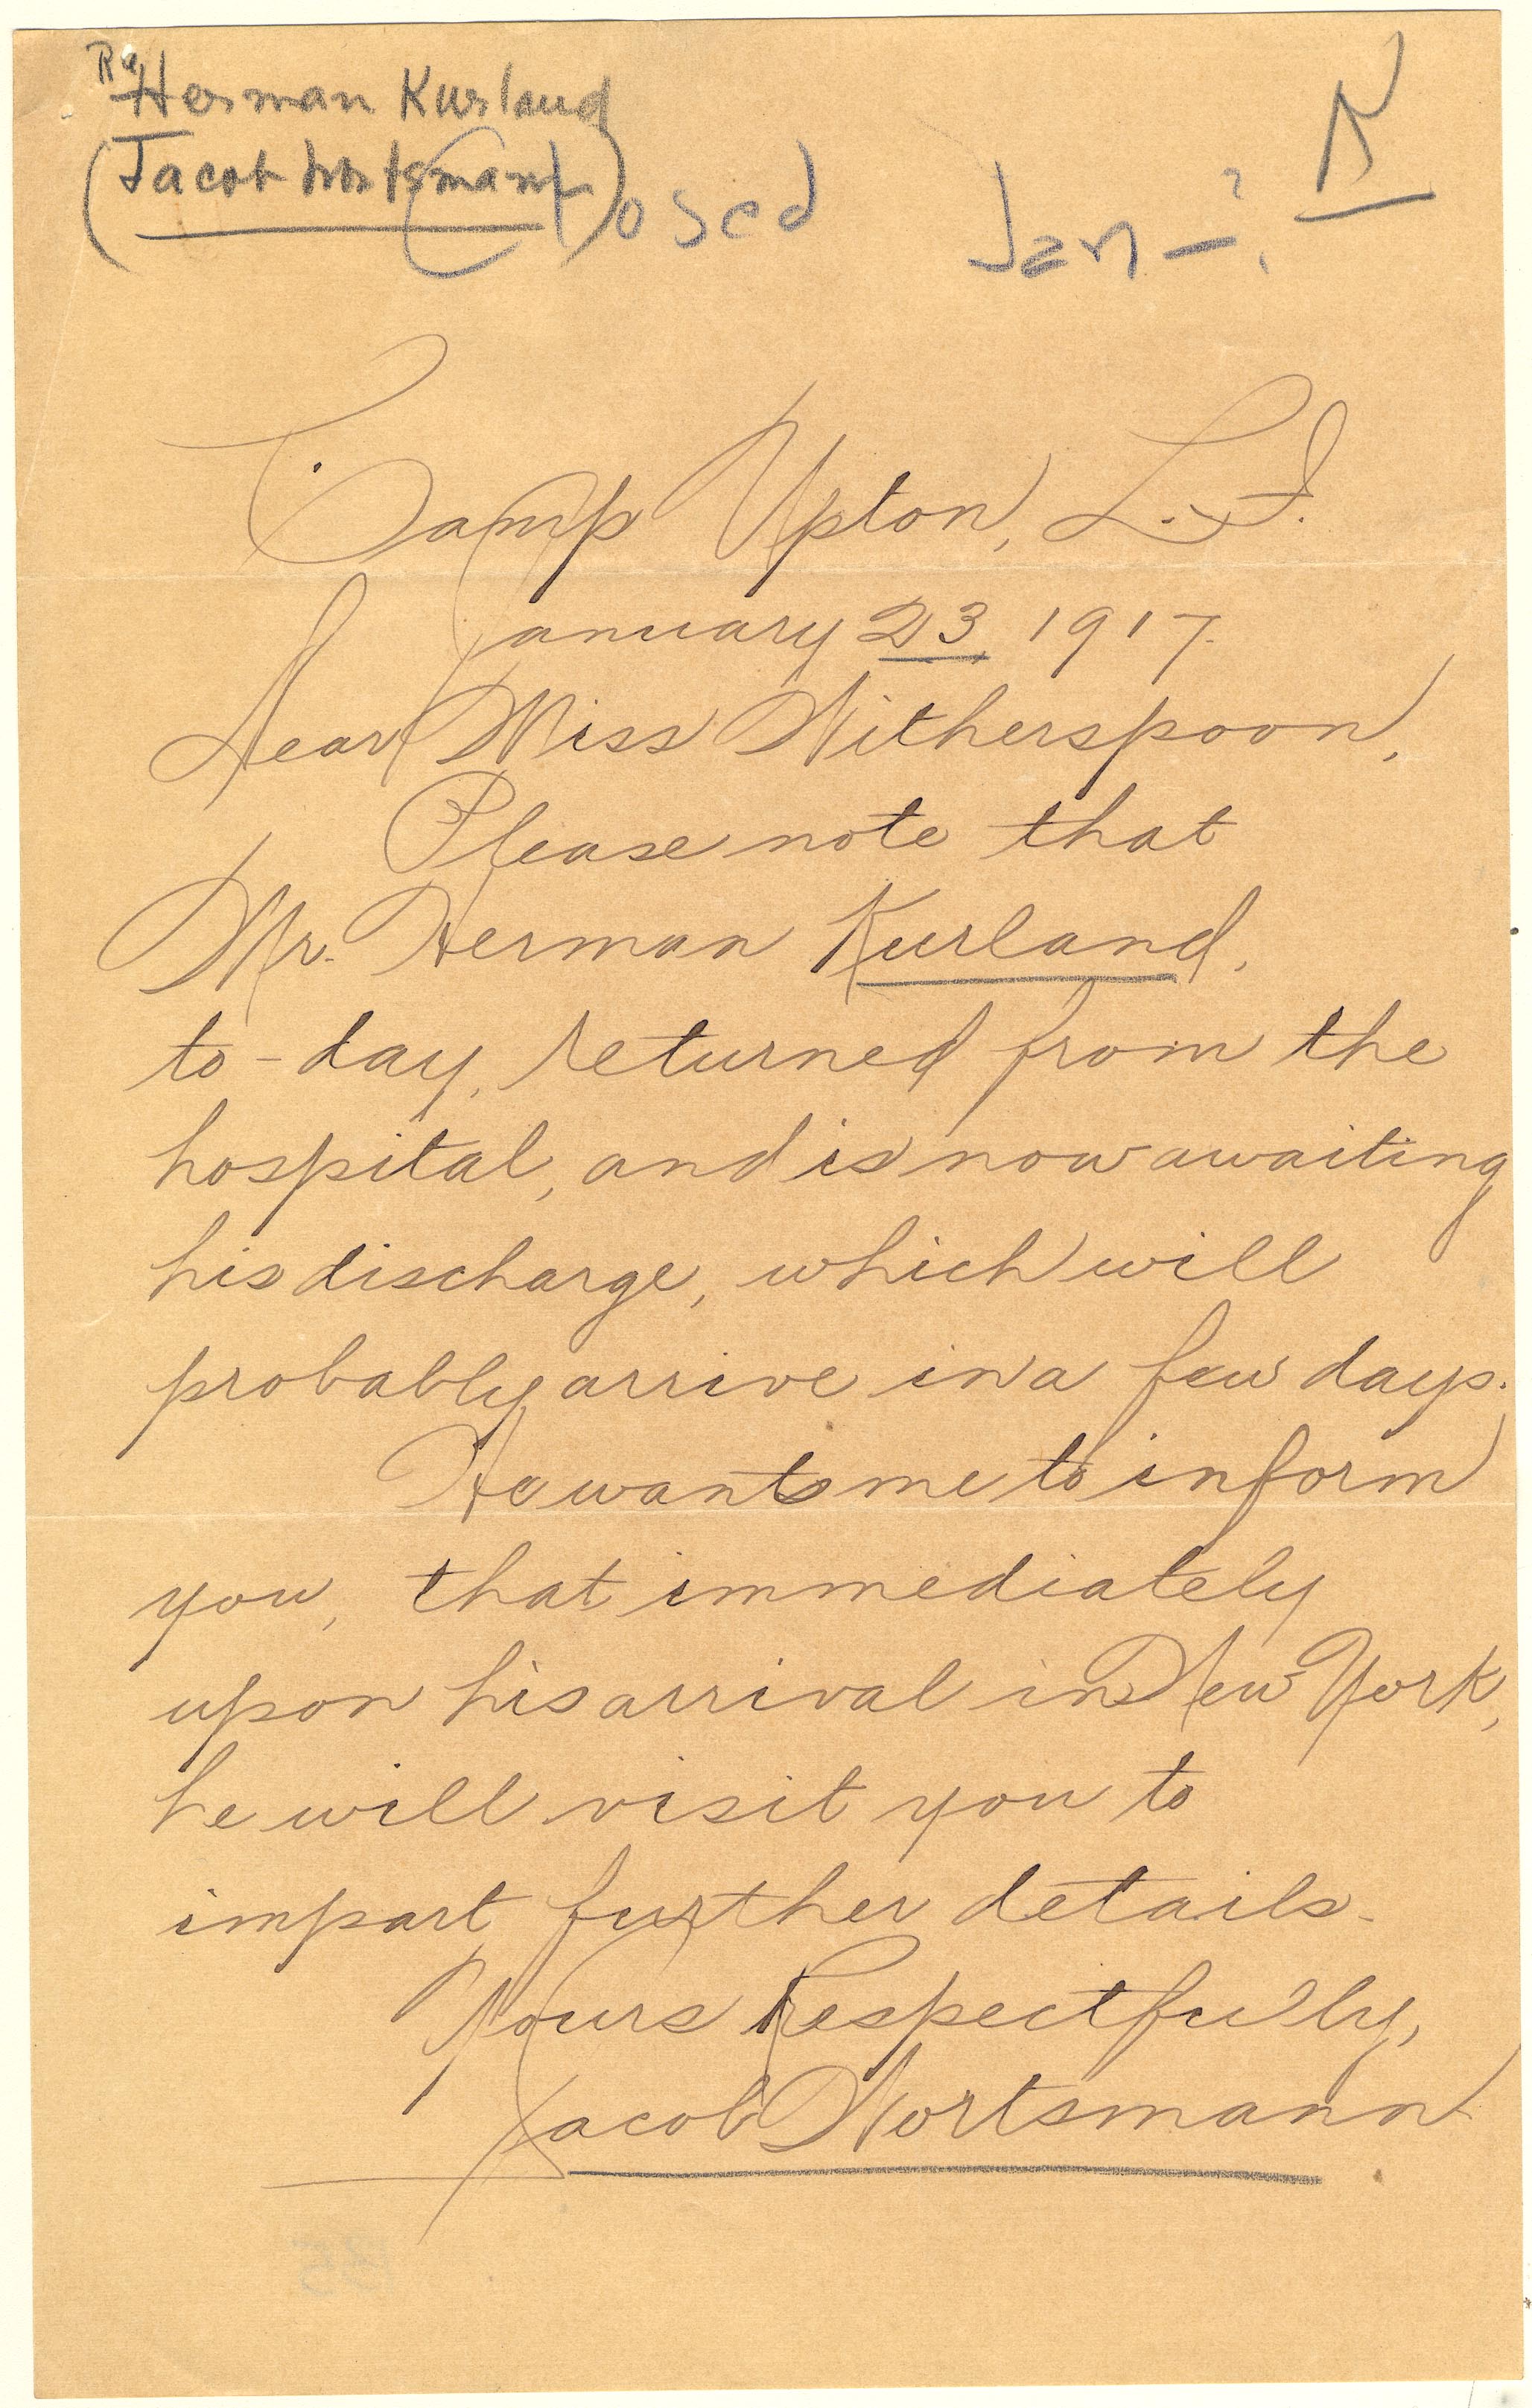 Re Herman Kurland K
(Jacob Wortsmann) Closed Jan - ?
Camp Upton, L.I.
January 23, 1917.
Dear Miss Witherspoon,
Please note that
Mr. Herman Kurland,
to-day, returned from the
hospital, and is now awaiting
his discharge, which will
probably arrive in a few days.
He wants me to inform
you, that immediately
upon his arrival in New York,
he will visit you to
impart further details.
Yours Respectfully,
Jacob Wortsmann